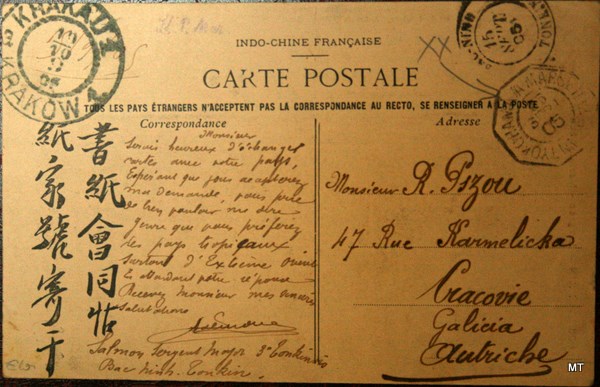 INDO-CHINE FRANÇAISE
CARTE POSTALE
TOUS LES PAYS ÉTRANGERS N'ACCEPTENT PAS LA CORRESPONDANCE AU RECTO, SE RENSEIGNER A LA POSTE
Correspondance
Adresse
KRAKAU
KRAKÓW
TONKIN
BAC-NINH
書紙會同
紙家號寄
Monsieur
Serais heureux d'échanger
cartes avec votre pays,
Espérant que vous accepterez
ma demande, vous prie
de bien vouloir me dire
genre que vous préférez
les pays tropicaux
Surtout d'Extrême Orient
En attendant votre réponse
Recevez Monsieur mes
Salutations
Salmon Sergent Major 3e Tonkinois
Bac Ninh. Tonkin.
Monsieur R. Pszon
47 Rue Karmelicka
Cracovie
Galicia
Autriche
MT